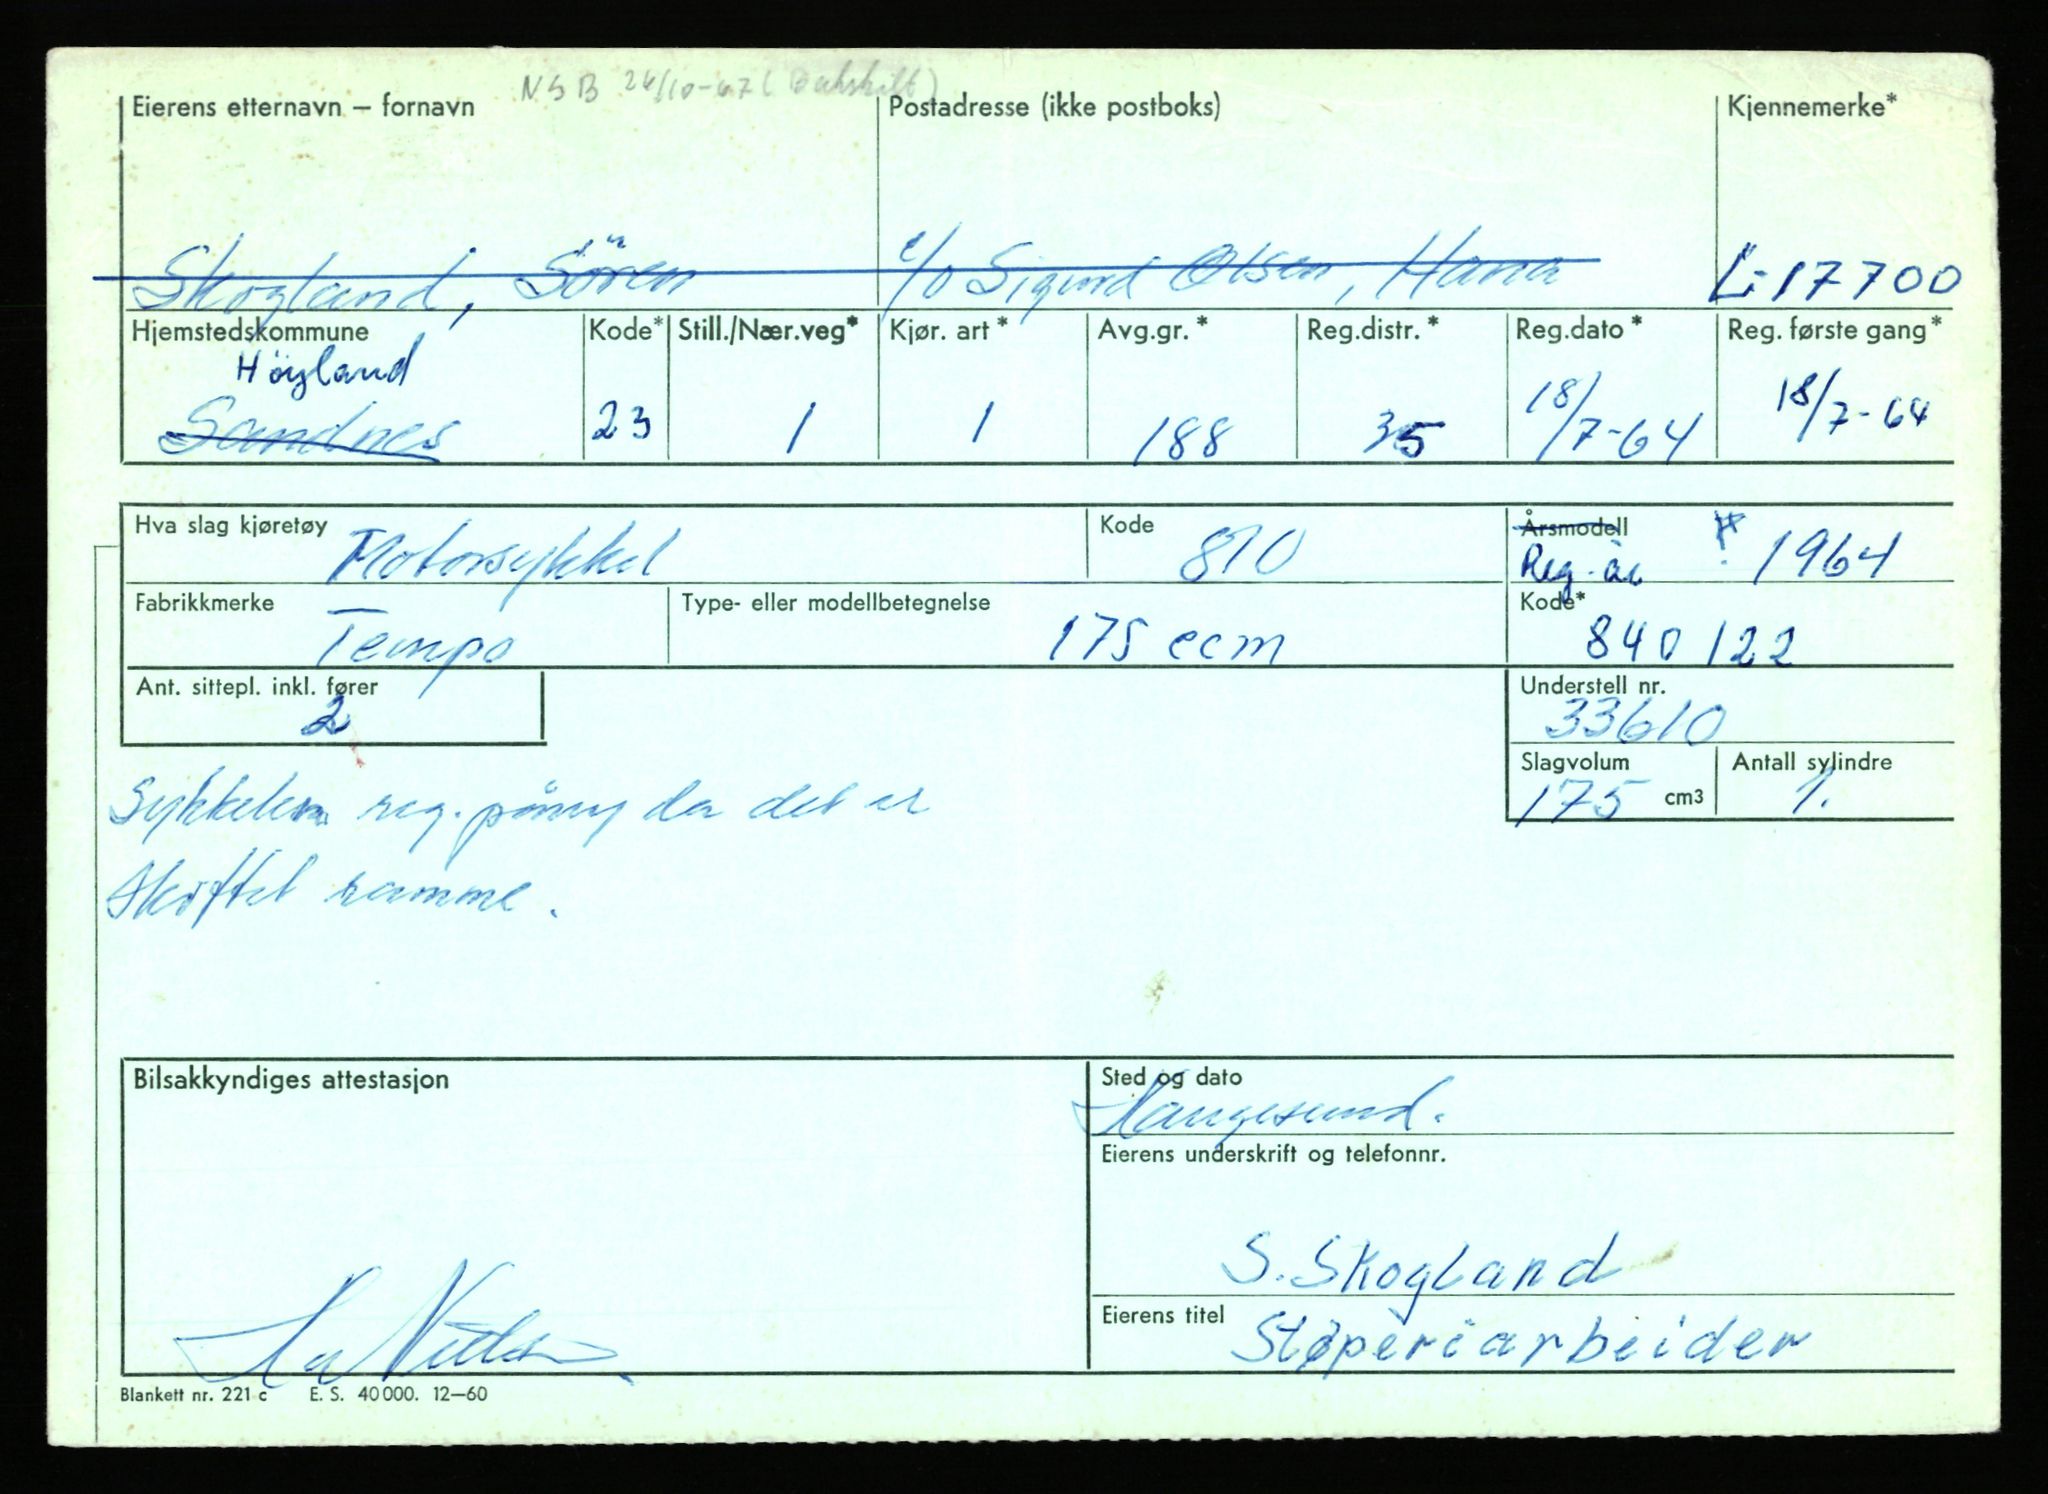 NSB 24/10-67 (Bakskilt)
Eierens etternavn – fornavn Postadresse (ikke postboks) Kjennemerke*
Skogland, Sören c/o Sigurd Olsen, Hana L-17700
Hjemstedskommune Kode* Still./Nær.veg* Kjør. art* Avg.gr.* Reg.distr.* Reg.dato* Reg. første gang*
Höyland
Sandnes 23 1 1 188 35 18/7-64 18/7-64
Hva slag kjøretøy Motorsykkel Kode 810 Årsmodell
Reg. år 1964
Fabrikkmerke Type- eller modellbetegnelse Kode*
Tempo 175 ccm 840 122
Ant. sittepl. inkl. fører Understell nr.
2 33610
Slagvolum Antall sylindre
175 cm3 1.
Sykkelen reg. pånny da det er
skiftet ramme.
Bilsakkyndiges attestasjon Sted og dato
Haugesund.
Eierens underskrift og telefonnr.
S. Skogland
Eierens titel Støperiarbeider
Blankett nr. 221 c E. S. 40 000. 12–60